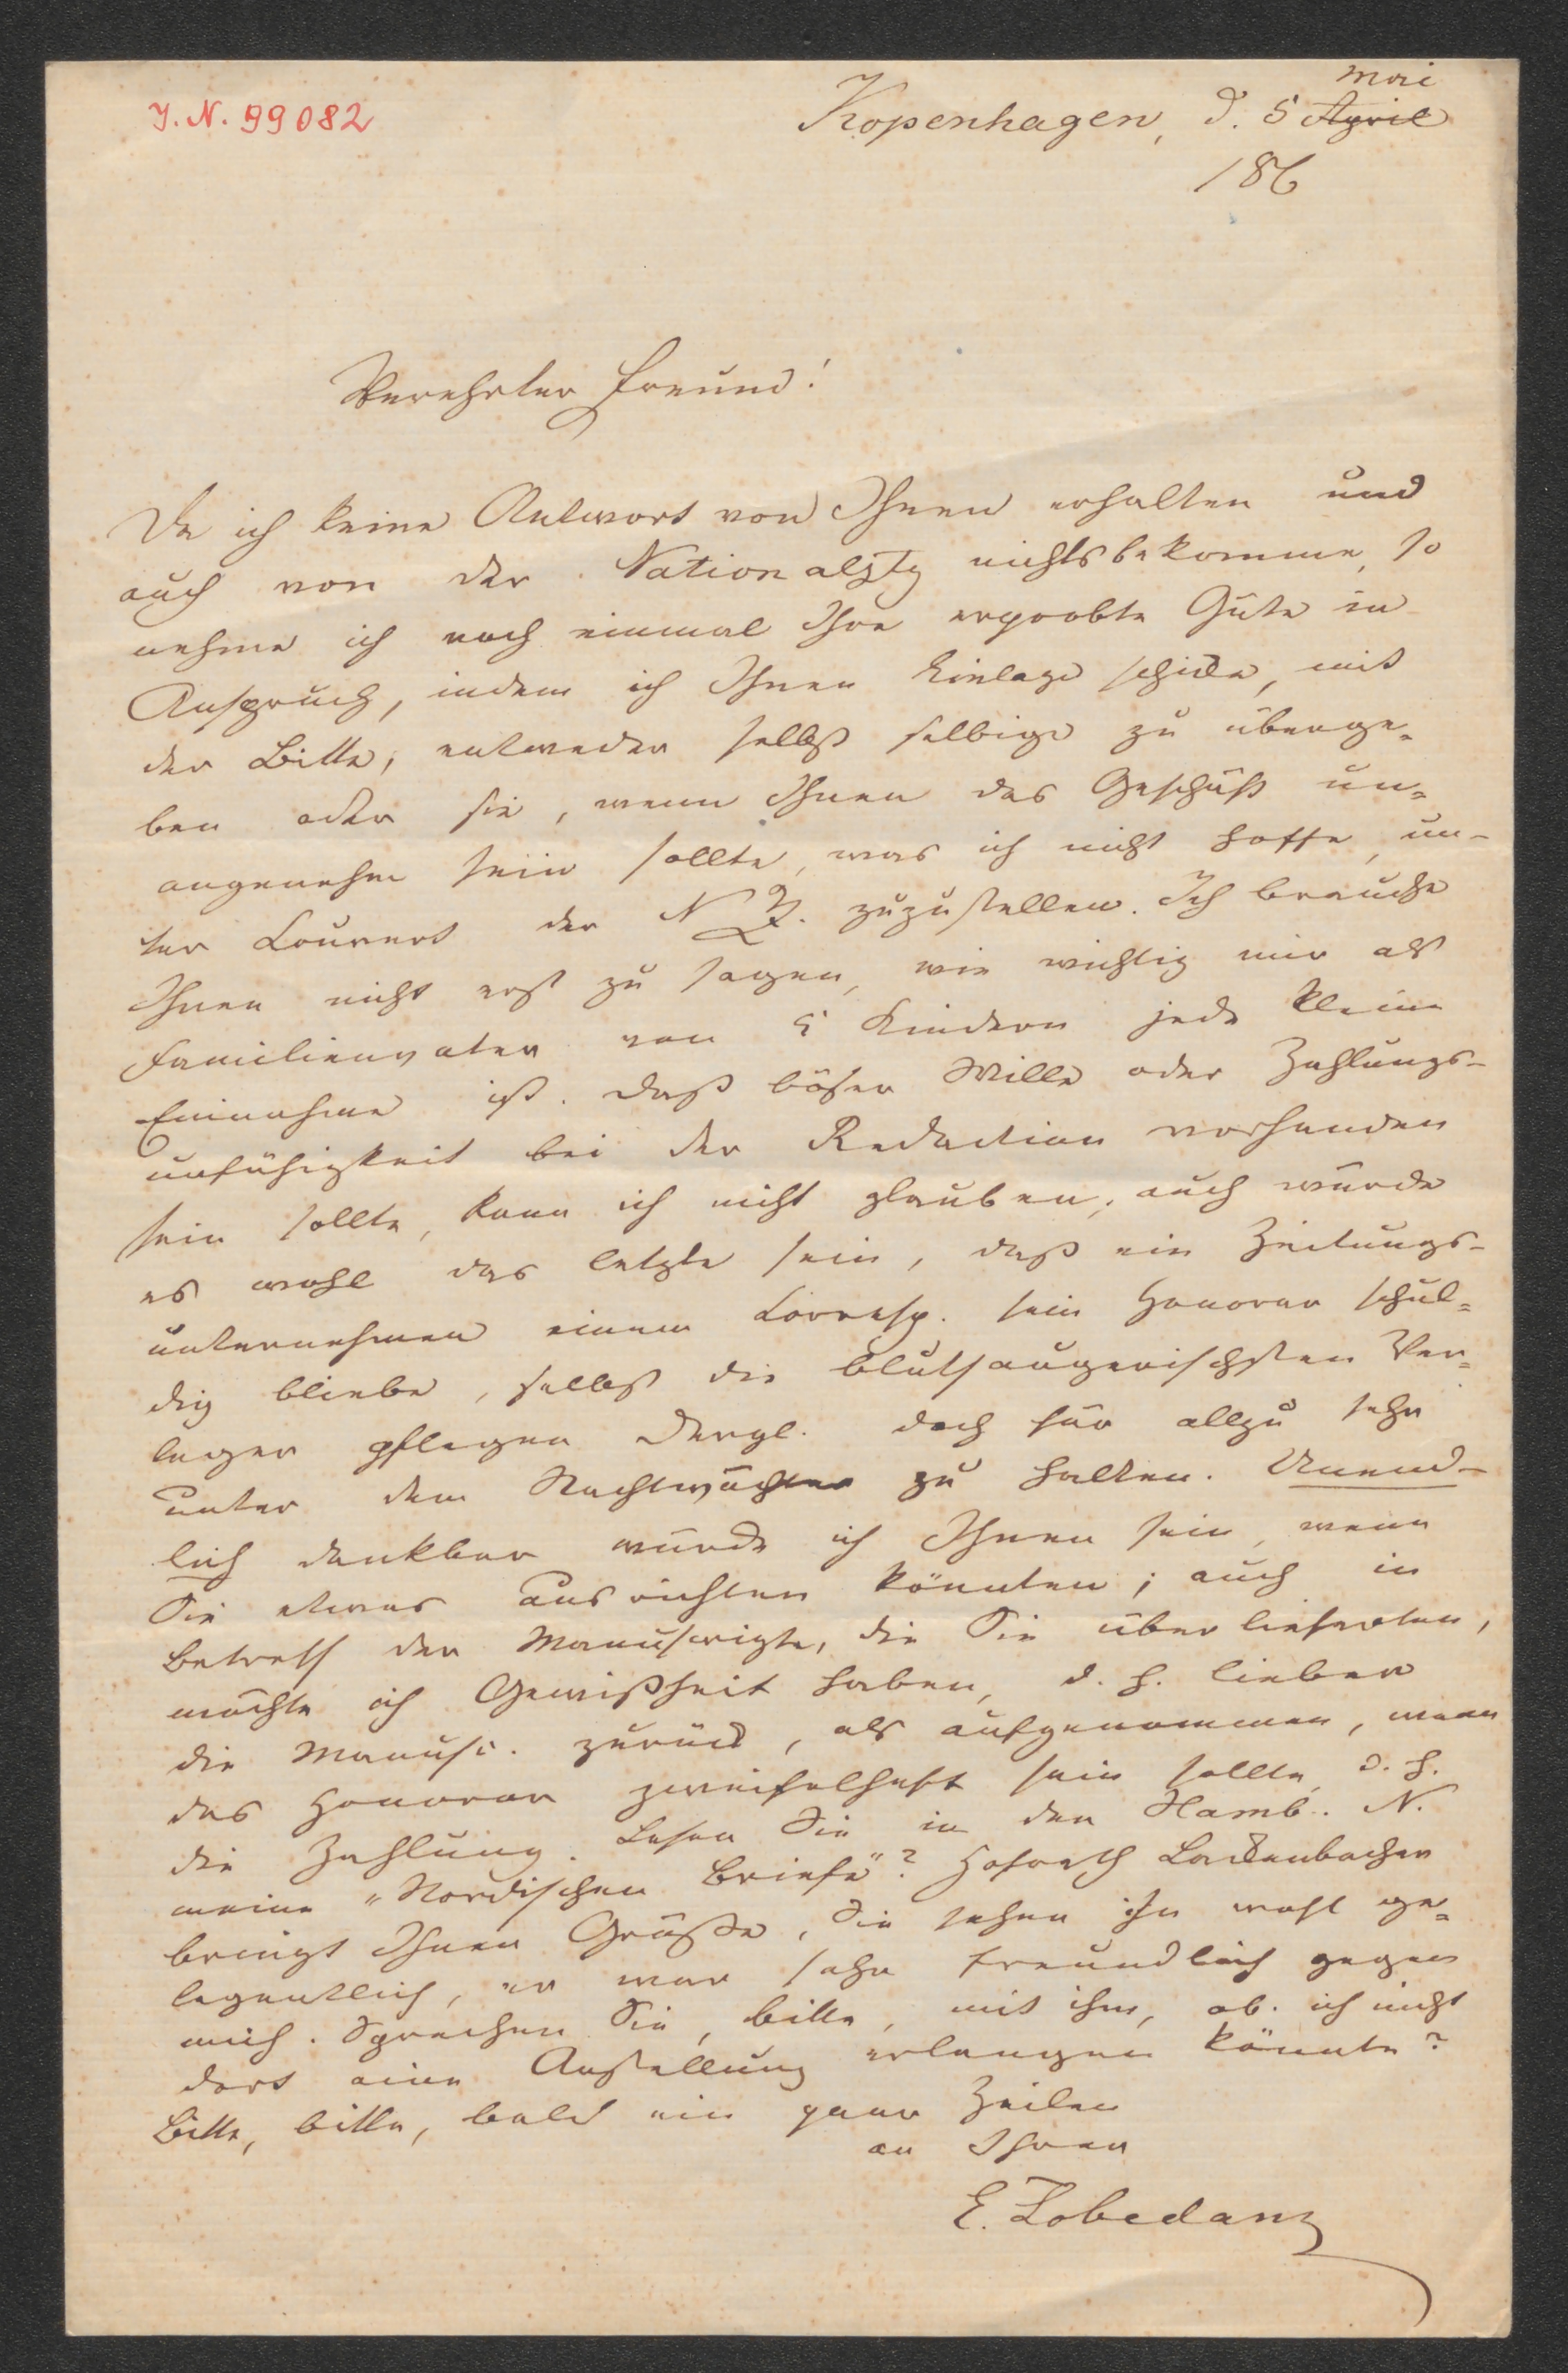 J. N. 99082
Mai
Kopenhagen, d. 5 April
186
Verehrter Freund!
Da ich keine Antwort von Ihnen erhalten und
auch von der Nationalztg nichts bekomme, so
nehme ich noch einmal Ihre erprobte Güte in
Anspruch, indem ich Ihnen Einlage schicke, mit
der Bitte, entweder selbst selbige zu überge-
ben oder sie, wenn Ihnen das Geschäft un-
angenehm sein sollte, was ich nicht hoffe, un-
ter Couvert der N Z. zuzustellen. Ich brauche
Ihnen nicht erst zu sagen, wie wichtig mir als
Familienvater von 5 Kindern jede kleine
Einnahme ist. Daß böser Wille oder Zahlungs-
unfähigkeit bei der Redaction vorhanden
sein sollte, kann ich nicht glauben; auch würde
es wohl das letzte sein, daß ein Zeitungs-
unternehmen einem Corresp. sein Honorar schul-
dig bliebe, selbst die blutsaugerischsten Ver-
leger pflegen dergl. doch für allzu sehr
unter dem Nachtwächter zu halten. Unend-
lich dankbar würde ich Ihnen sein, wenn
Sie etwas ausrichten könnten; auch in
Betreff der Manuscripte, die Sie überlieferten,
möchte ich Gewißheit haben, d. h. lieber
die Manusc. zurück, als aufgenommen, wenn
das Honorar zweifelhaft sein sollte, d. h.
die Zahlung. Lesen Sie in den Hamb. N.
meine "Nordischen Briefe"? Hofrath Lackenbacher
bringt Ihnen Grüße, Sie sehen ihn wohl ge-
legentlich, er war sehr freundlich gegen
mich. Sprechen Sie, bitte, mit ihm, ob ich nicht
dort eine Anstellung erlangen könnte?
Bitte, bitte, bald ein paar Zeilen
an Ihren
E. Lobedanz